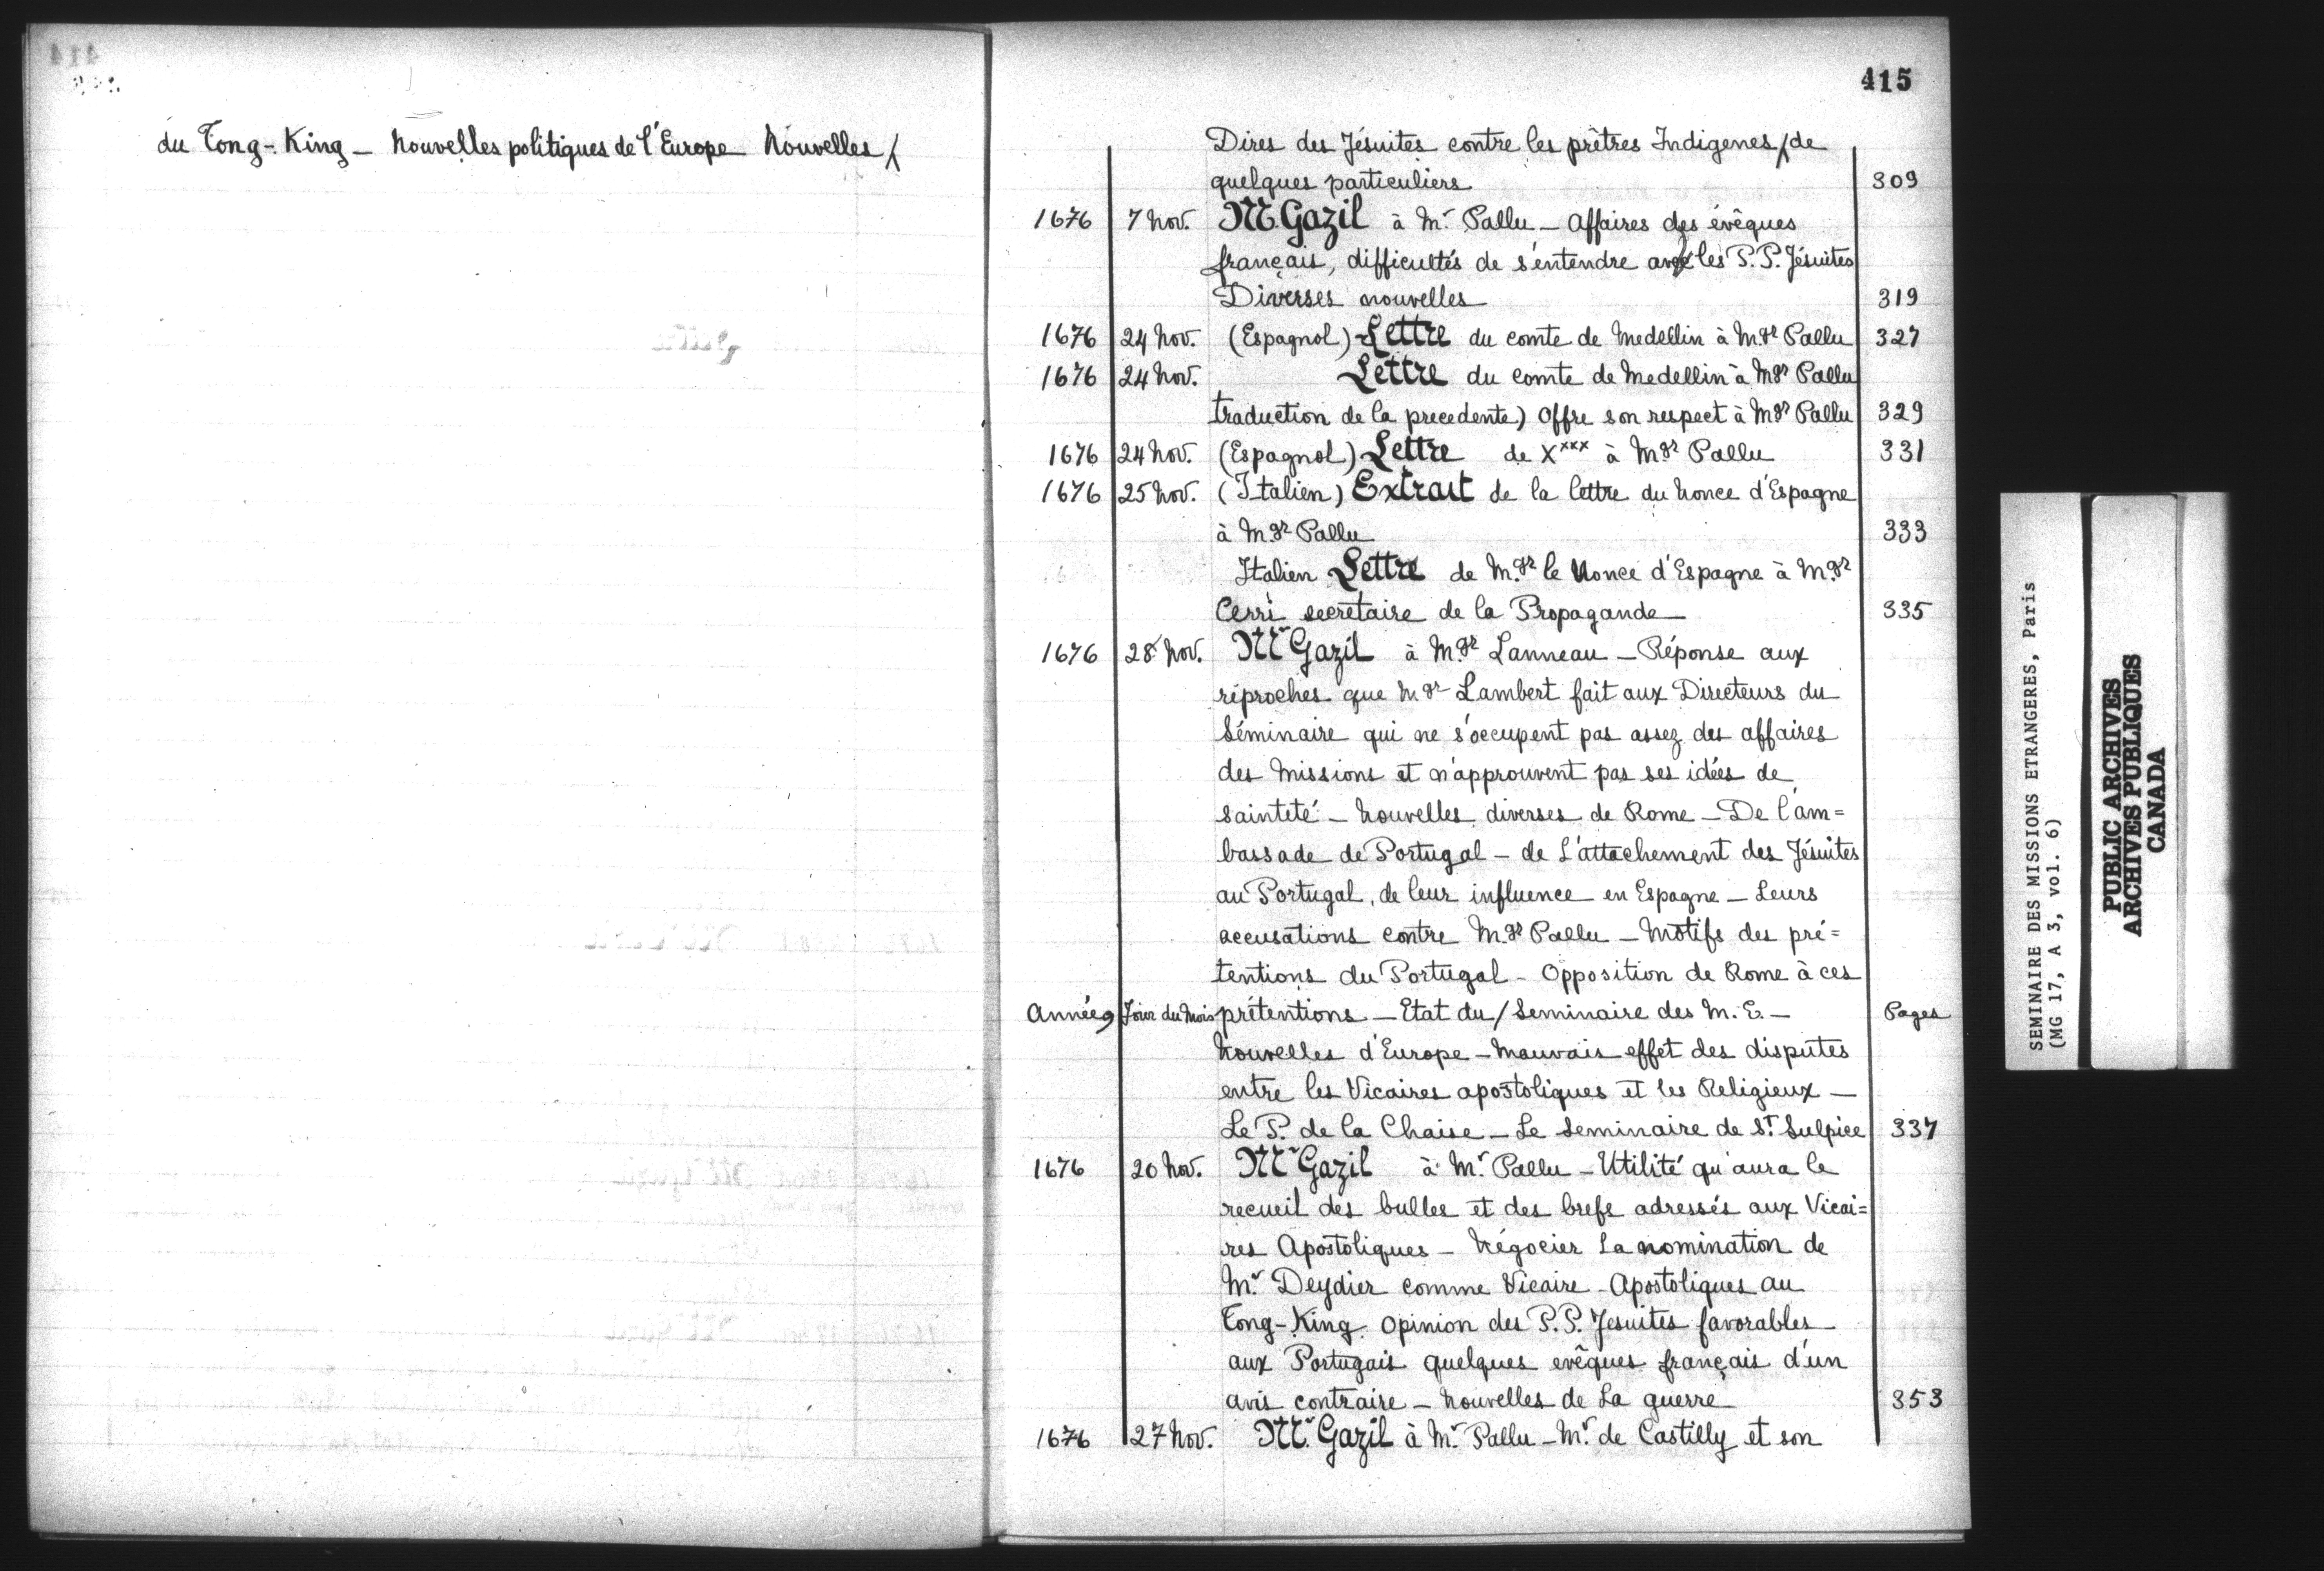 du Tong-King - Nouvelles politiques de l'Europe Nouvelles /
415
Dires des Jésuites contre les prêtres Indigenes / de
quelques particuliers 309
1676 7 Nov. M. Gazil à Mr. Pallu - Affaires des évêques
français, difficultés de s'entendre avec les P.P. Jésuites
Diverses nouvelles 319
1676 24 Nov. (Espagnol) Lettre du comte de Medellin à Mgr Pallu 327
1676 24 Nov. Lettre du comte de Medellin à Mgr Pallu
traduction de la precedente) Offre son respect à Mgr Pallu 329
1676 24 Nov. (Espagnol) Lettre de Xxxx à Mgr Pallu 331
1676 25 Nov. (Italien) Extrait de la lettre du Nonce d'Espagne
à Mgr Pallu 333
Italien Lettre de Mgr le Nonce d'Espagne à Mgr
Cerri secretaire de la Propagande 335
1676 28 Nov. Mr Gazil à Mgr Lanneau - Réponse aux
réproches que Mgr Lambert fait aux Directeurs du
Séminaire qui ne s'occupent pas assez des affaires
des Missions et n'approuvent pas ses idées de
sainteté - Nouvelles diverses de Rome - De l'am=
bassade de Portugal - de L'attachement des Jésuites
au Portugal, de leur influence en Espagne - Leurs
accusations contre Mgr Pallu - Motifs des pré=
tentions du Portugal - Opposition de Rome à ces
Années Jour du Mois prétentions - Etat du / Seminaire des M. E. - Pages
Nouvelles d'Europe - Mauvais effet des disputes
entre les Vicaires apostoliques et les Religieux -
Le P. de la Chaise - Le Seminaire de St Sulpice 337
1676 20 Nov. Mr Gazil à Mr Pallu - Utilité qu'aura le
recueil des bulles et des brefs adressés aux Vicai=
res Apostoliques - Négocier La nomination de
Mr Deydier comme Vicaire - Apostoliques au
Tong-King. Opinion des P.P. Jesuites favorables
aux Portugais quelques evêques français d'un
avis contraire - Nouvelles de La guerre 353
1676 27 Nov. Mr. Gazil à Mr Pallu - Mr. de Castilly et son
SEMINAIRE DES MISSIONS ETRANGERES, Paris
(MG 17, A 3, vol. 6)
PUBLIC ARCHIVES
ARCHIVES PUBLIQUES
CANADA